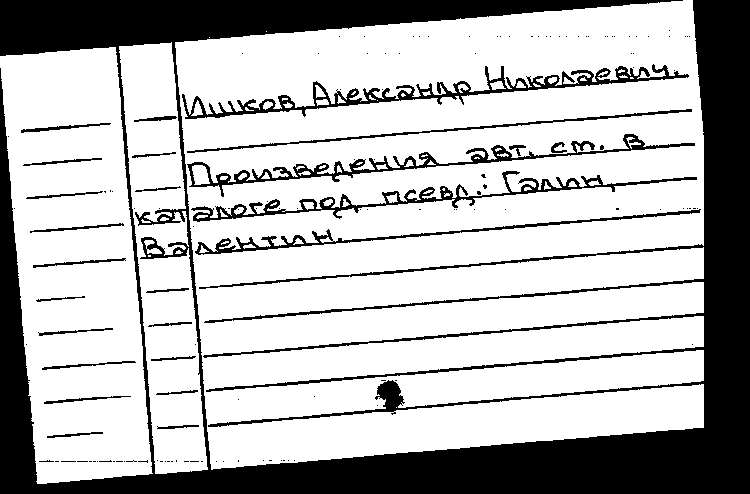 Ишков, Александр Николаевич.
Произведения авт. ст. в
каталоге под псевд.: Галин,
Валентин.